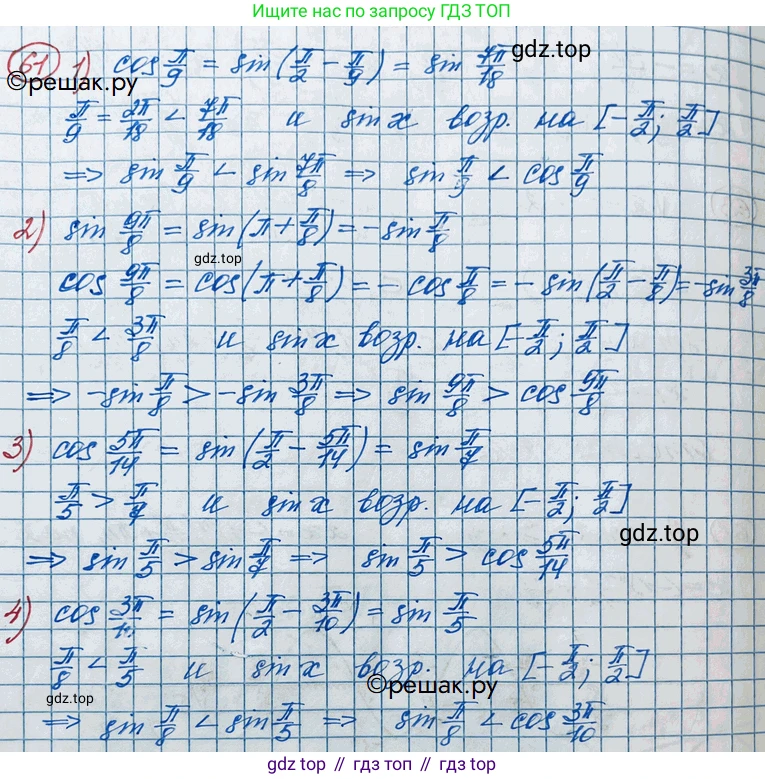 Ищите нас по запросу ГДЗ ТОП
61 1) cos π/9 = sin(π/2 − π/9) = sin 7π/18
гдз.top
©решак.ру
π/9 = 2π/18 < 7π/18 и sin x возр. на [−π/2; π/2]
=> sin π/9 < sin 7π/8 => sin π/9 < cos π/9
2) sin 9π/8 = sin(π + π/8) = −sin π/8
гдз.top
cos 9π/8 = cos(π + π/8) = − cos π/8 = − sin(π/2 − π/8) = −sin 3π/8
π/8 < 3π/8 и sin x возр. на [−π/2; π/2]
=> −sin π/8 > −sin 3π/8 => sin 9π/8 > cos 9π/8
3) cos 5π/14 = sin(π/2 − 5π/14) = sin π/7
π/5 > π/7 и sin x возр. на [−π/2; π/2]
гдз.top
=> sin π/5 > sin π/7 => sin π/5 > cos 5π/14
4) cos 3π/10 = sin(π/2 − 3π/10) = sin π/5
π/8 < π/5 и sin x возр. на [−π/2; π/2]
©решак.ру
гдз.top
=> sin π/8 < sin π/5 => sin π/8 < cos 3π/10
гдз.top // гдз.топ // gdz.top